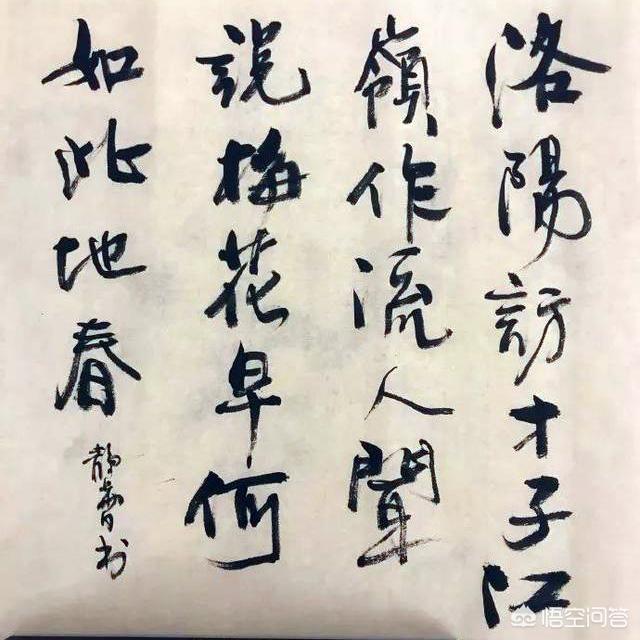 洛陽訪才子江
嶺作流人聞
説梅花早何
如此地春
書
悟空问答